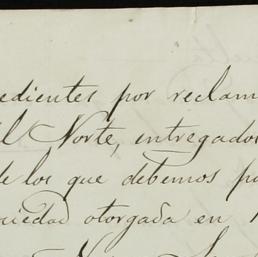 edientes por reclam
el Norte, entregados
de los que debemos pa
ciedad otorgada en 1